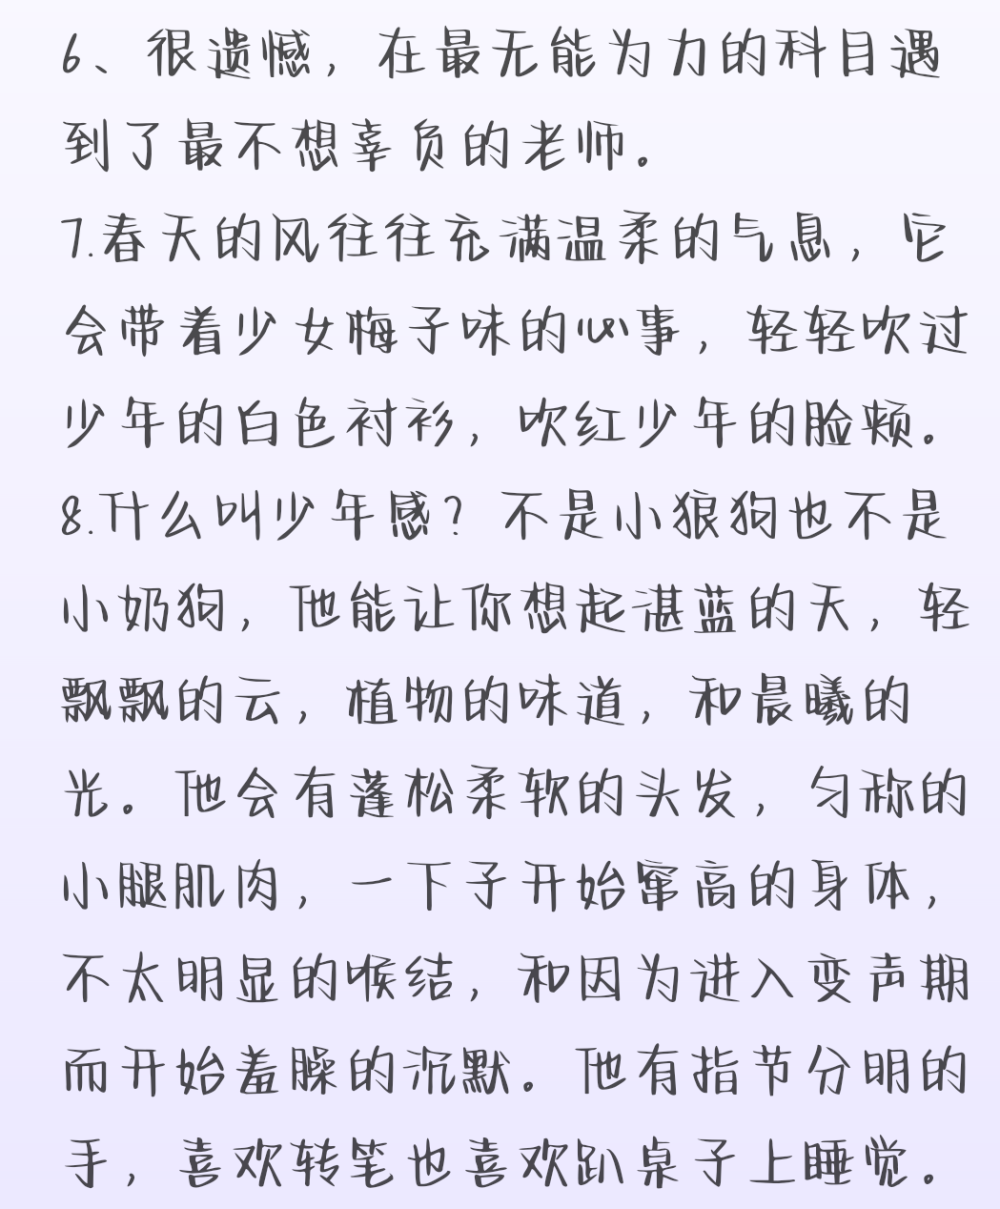 6、很遗憾，在最无能为力的科目遇
到了最不想辜负的老师。
7.春天的风往往充满温柔的气息，它
会带着少女梅子味的心事，轻轻吹过
少年的白色衬衫，吹红少年的脸颊。
8.什么叫少年感？不是小狼狗也不是
小奶狗，他能让你想起湛蓝的天，轻
飘飘的云，植物的味道，和晨曦的
光。他会有蓬松柔软的头发，匀称的
小腿肌肉，一下子开始窜高的身体，
不太明显的喉结，和因为进入变声期
而开始羞臊的沉默。他有指节分明的
手，喜欢转笔也喜欢趴桌子上睡觉。